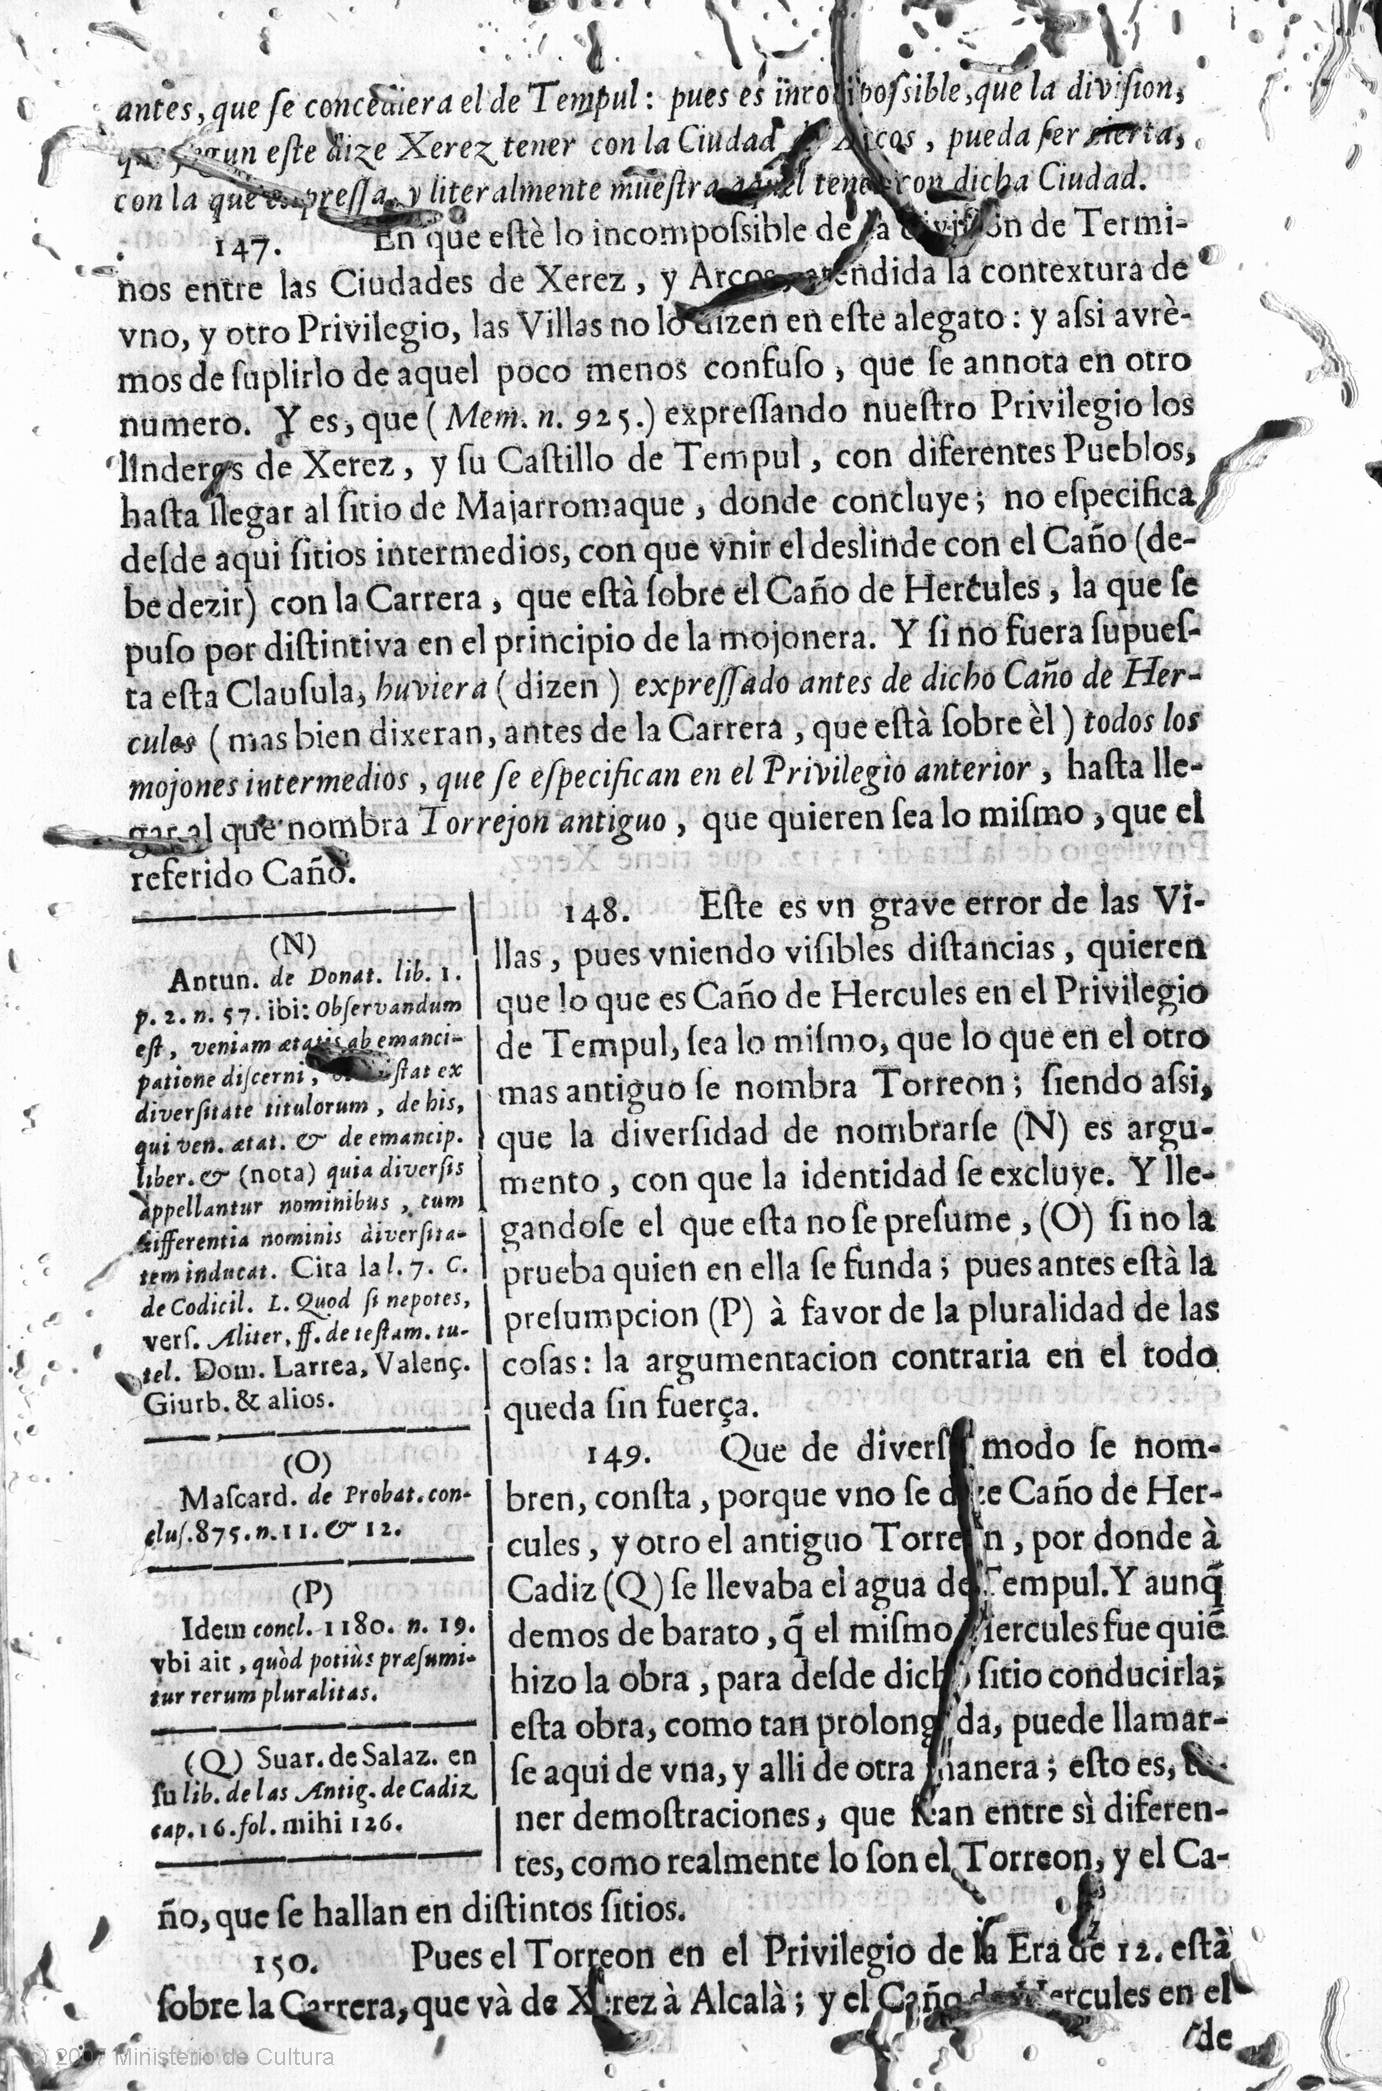 antes, que ſe concediera el de Tempul: pues es incompoſsible, que la diviſion,
que ſegun eſte dize Xerez tener con la Ciudad de Arcos, pueda ſer cierta,
con la que expreſſa, y literalmente mueſtra aquel tener con dicha Ciudad.
147. En que eſtè lo incompoſsible de la diviſion de Termi-
nos entre las Ciudades de Xerez, y Arcos, atendida la contextura de
vno, y otro Privilegio, las Villas no lo dizen en eſte alegato: y aſsi avrè-
mos de ſuplirlo de aquel poco menos confuſo, que ſe annota en otro
numero. Y es, que (Mem. n. 925.) expreſſando nueſtro Privilegio los
linderos de Xerez, y ſu Caſtillo de Tempul, con diferentes Pueblos,
haſta llegar al ſitio de Majarromaque, donde concluye; no eſpecifica
deſde aqui ſitios intermedios, con que vnir el deslinde con el Caño (de-
be dezir) con la Carrera, que eſtà ſobre el Caño de Hercules, la que ſe
puſo por diſtintiva en el principio de la mojonera. Y ſi no fuera ſupueſ-
ta eſta Clauſula, huviera (dizen) expreſſado antes de dicho Caño de Her-
cules (mas bien dixeran, antes de la Carrera, que eſtà ſobre èl) todos los
mojones intermedios, que ſe eſpecifican en el Privilegio anterior, haſta lle-
gar al que nombra Torrejon antiguo, que quieren ſea lo miſmo, que el
referido Caño.
148. Eſte es vn grave error de las Vi-
llas, pues vniendo viſibles diſtancias, quieren
que lo que es Caño de Hercules en el Privilegio
de Tempul, ſea lo miſmo, que lo que en el otro
mas antiguo ſe nombra Torreon; ſiendo aſsi,
que la diverſidad de nombrarſe (N) es argu-
mento, con que la identidad ſe excluye. Y lle-
gandoſe el que eſta no ſe preſume, (O) ſi no la
prueba quien en ella ſe funda; pues antes eſtà la
preſumpcion (P) à favor de la pluralidad de las
coſas: la argumentacion contraria en el todo
queda ſin fuerça.
149. Que de diverſo modo ſe nom-
bren, conſta, porque vno ſe dize Caño de Her-
cules, y otro el antiguo Torreon, por donde à
Cadiz (Q) ſe llevaba el agua de Tempul. Y aunq̃
demos de barato, q̃ el miſmo Hercules fue quiẽ
hizo la obra, para deſde dicho ſitio conducirla;
eſta obra, como tan prolongada, puede llamar-
ſe aqui de vna, y alli de otra manera; eſto es, te-
ner demoſtraciones, que ſean entre sì diferen-
tes, como realmente lo ſon el Torreon, y el Ca-
ño, que ſe hallan en diſtintos ſitios.
150. Pues el Torreon en el Privilegio de la Era de 12. eſtà
ſobre la Carrera, que và de Xerez à Alcalà; y el Caño de Hercules en el
de
(N)
Antun. de Donat. lib. 1.
p. 2. n. 57. ibi: Obſervandum
eſt, veniam ætatis ab emanci-
patione diſcerni, ſtat ex
diverſitate titulorum, de his,
qui ven. ætat. & de emancip.
liber. & (nota) quia diverſis
appellantur nominibus, cum
differentia nominis diverſita-
tem inducat. Cita la l. 7. C.
de Codicil. L. Quod ſi nepotes,
verſ. Aliter, ff. de teſtam. tu-
tel. Dom. Larrea, Valenç.
Giurb. & alios.
(O)
Maſcard. de Probat. con-
cluſ. 875. n. 11. & 12.
(P)
Idem concl. 1180. n. 19.
vbi ait, quòd potiùs præſumi-
tur rerum pluralitas.
(Q) Suar. de Salaz. en
ſu lib. de las Antig. de Cadiz
cap. 16. fol. mihi 126.
(c) 2007 Ministerio de Cultura